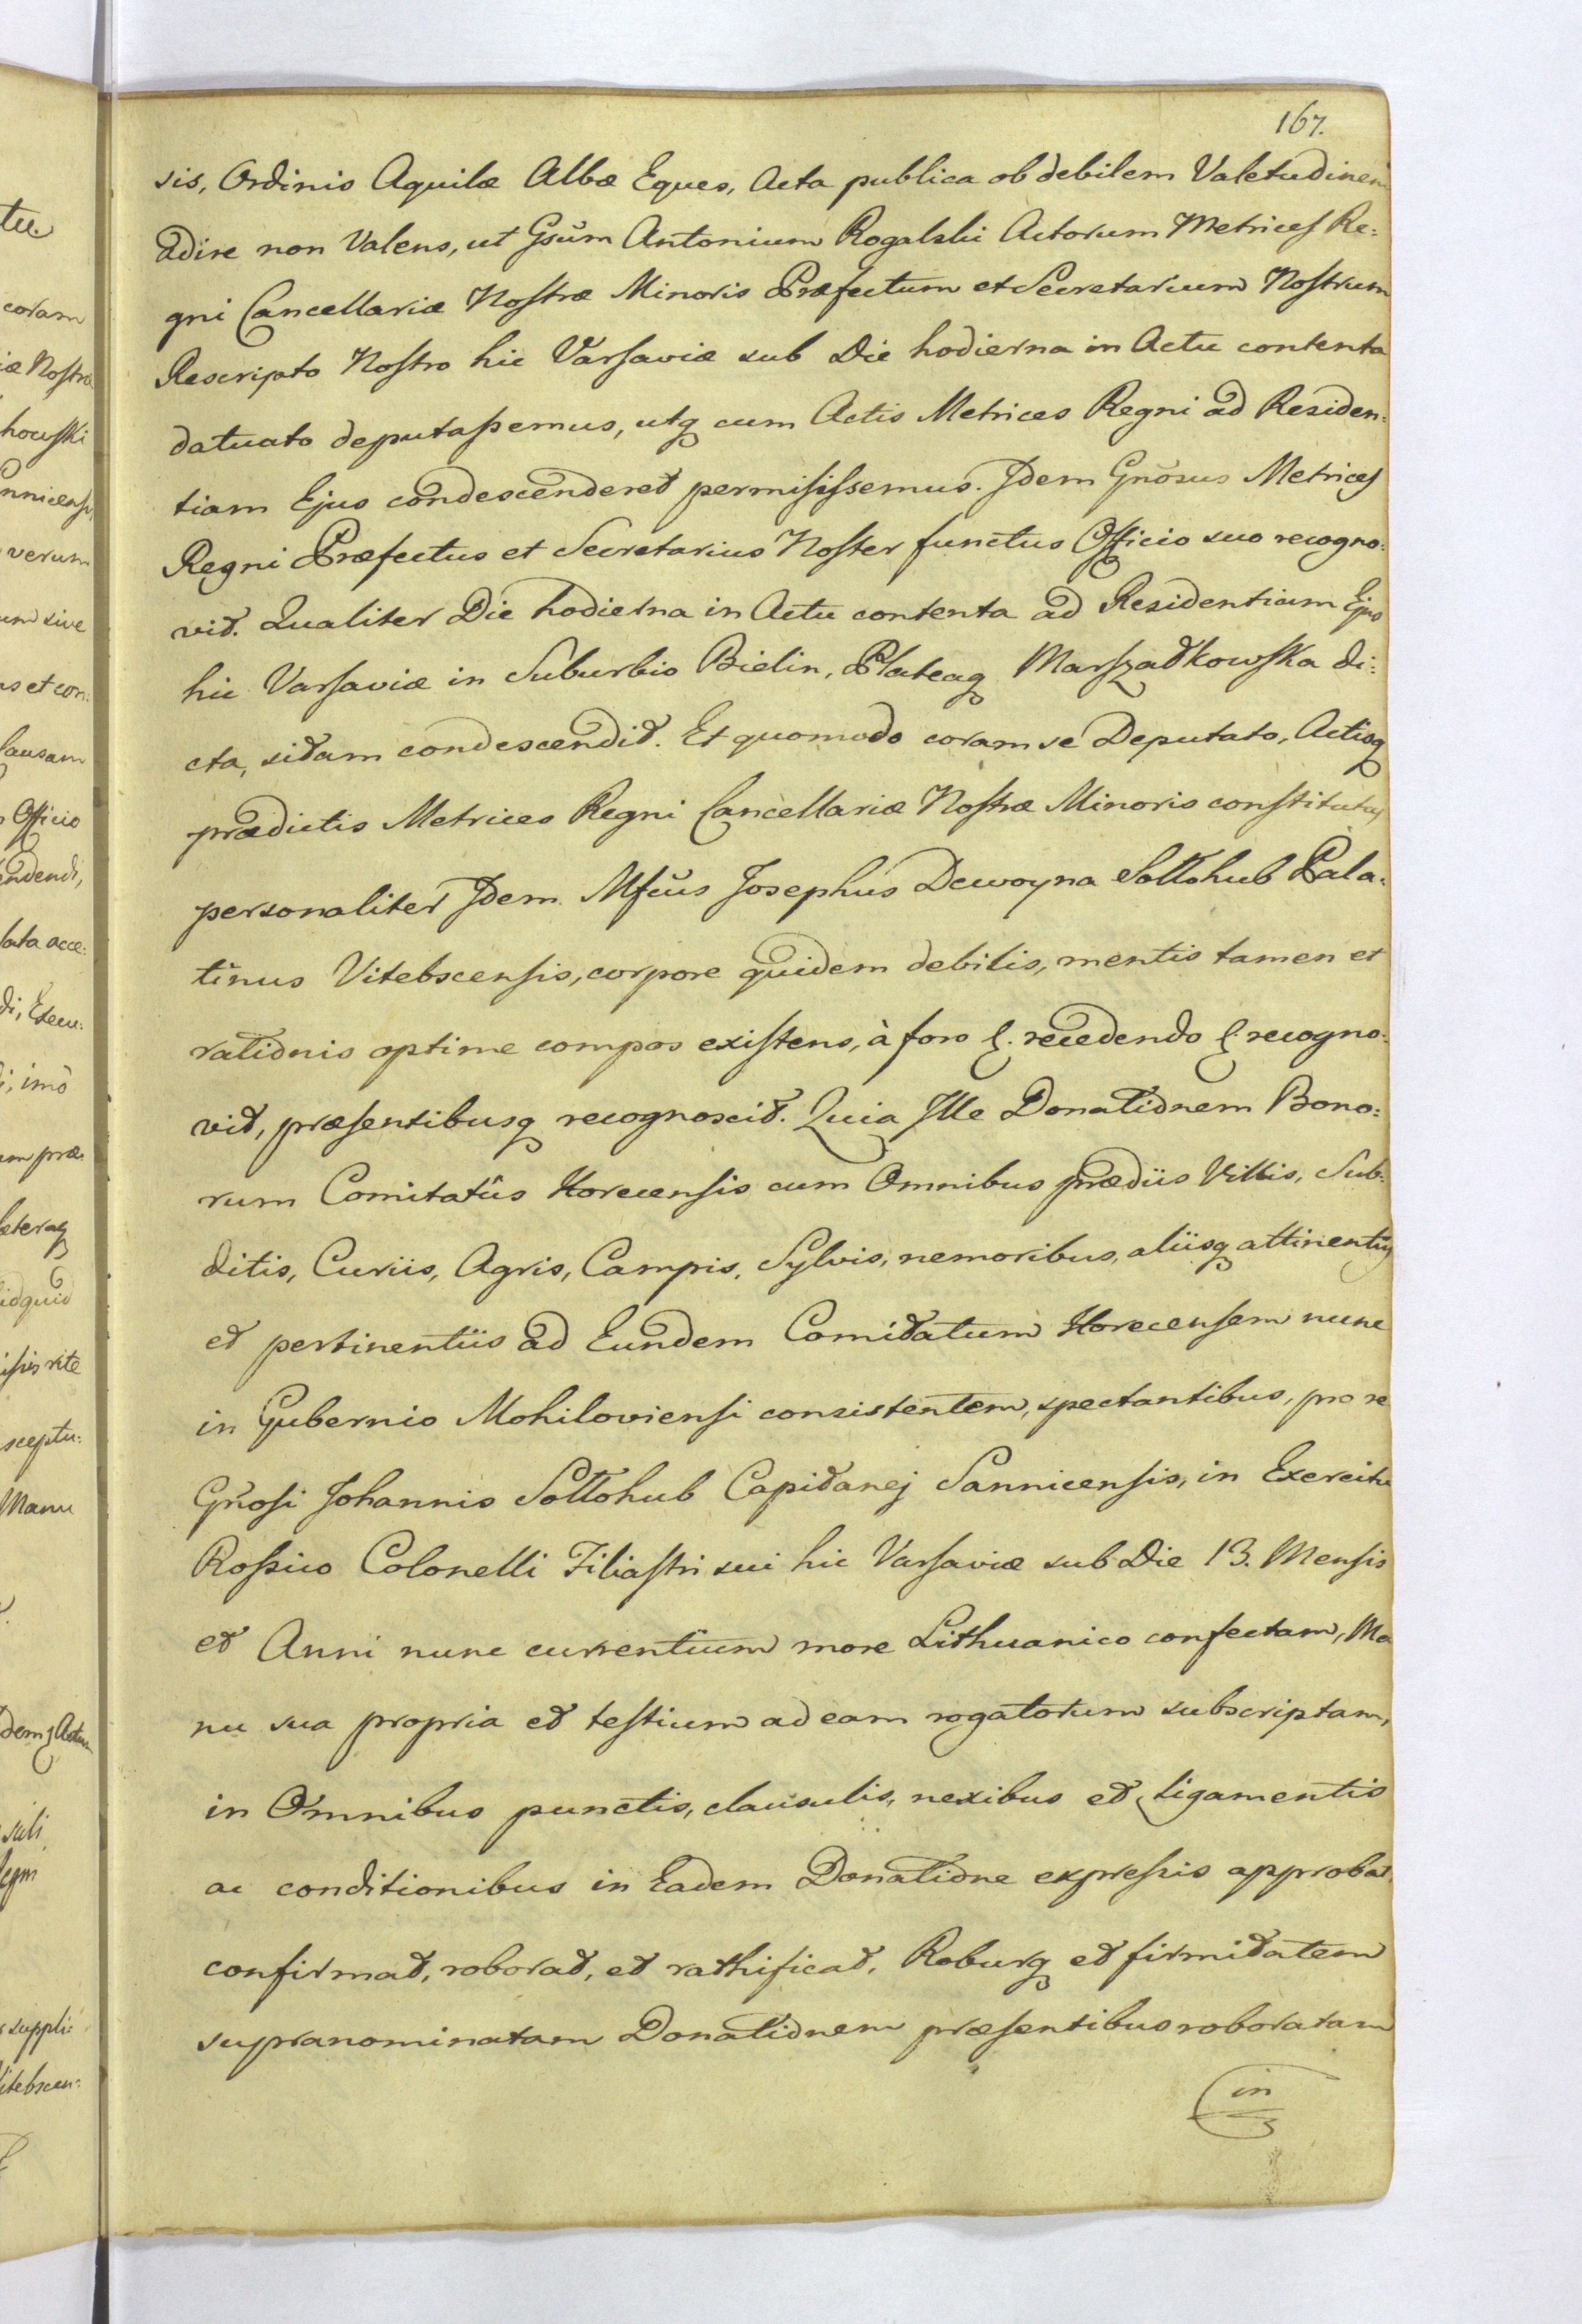 167.
sis, Ordinis Aquilæ Albæ Eques, Acta publica ob debilem Valetudinem
adire non Valens, ut Gsūm Antonium Rogalski Actorum Metrices Re:
gni Cancellariæ Nostræ Minoris Præfectum et Secretarium Nostrum
Rescripto Nostro hic Varsaviæ sub Die hodierna in Actu contenta
datuato deputassemus, utq cum Actis Metrices Regni ad Residen:
tiam Ejus condescenderet permisissemus. Idem Gnōsus Metrices
Regni Præfectus et Secretarius Noster functus Officio suo recogno:
vit. Qualiter Die hodierna in Actu contenta ad Residentiam Ejus
hic Varsaviæ in Suburbio Bielin, Plateaq Marszałkowska di:
cta, sitam condescendit. Et quomodo coram se Deputato, Actisq
prædictis Metrices Regni Cancellariæ Nostræ Minoris constitutus
personaliter Idem Mfcūs Josephus Dewoyna Sołłohub Pala:
tinus Vitebscensis, corpore quidem debilis, mentis tamen et
rationis optime compos existens, à foro ł. recedendo ł. recogno:
vit, præsentibusq recognoscit. Quia Ille Donationem Bono:
rum Comitatûs Horecensis cum Omnibus prædiis Villis, Sub:
ditis, Curiis, Agris, Campis, Sylvis, nemoribus, aliisq attinentijs
et pertinentiis ad Eundem Comitatum Horecensem nunc
in Gubernio Mohiloviensi consistentem, spectantibus, pro re
Gnōsi Johannis Sołłohub Capitanej Sannicensis, in Exercitu
Rossico Colonelli Filiastri sui hic Varsaviæ sub Die 13. Mensis
et Anni nunc currentium more Lithuanico confectam, Ma
nu sua propria et testium ad eam rogatorum subscriptam,
in Omnibus punctis, clausulis, nexibus et ligamentis
ac conditionibus in Eadem Donatione expressis approbat,
confirmat, roborat, et rathificat, Roburq et firmitatem
supranominatam Donationem præsentibus roboratam
in
tu
coram
iæ Nostræ
howski
nnicensi
verum
um sive
us et con:
lausam
Officio
endendi,
lata acce:
di, Execu:
i, imò
um præ:
leteraq
idquid
issis rite
sceptu:
Manu
suli
Regni
supplic
itebscen: